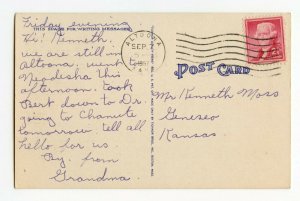 Friday evening
THIS SPACE FOR WRITING MESSAGES
Hi! Kenneth,
we are still in
Altoona. went
Neodesha this
afternoon. took
Bert down to Dr.
going to Chanute
tomorrow, tell all
hello for us.
By. from
Grandma.
ALTOONA
SEP
POST CARD
Mr Kenneth Moss
Geneseo
Kansas